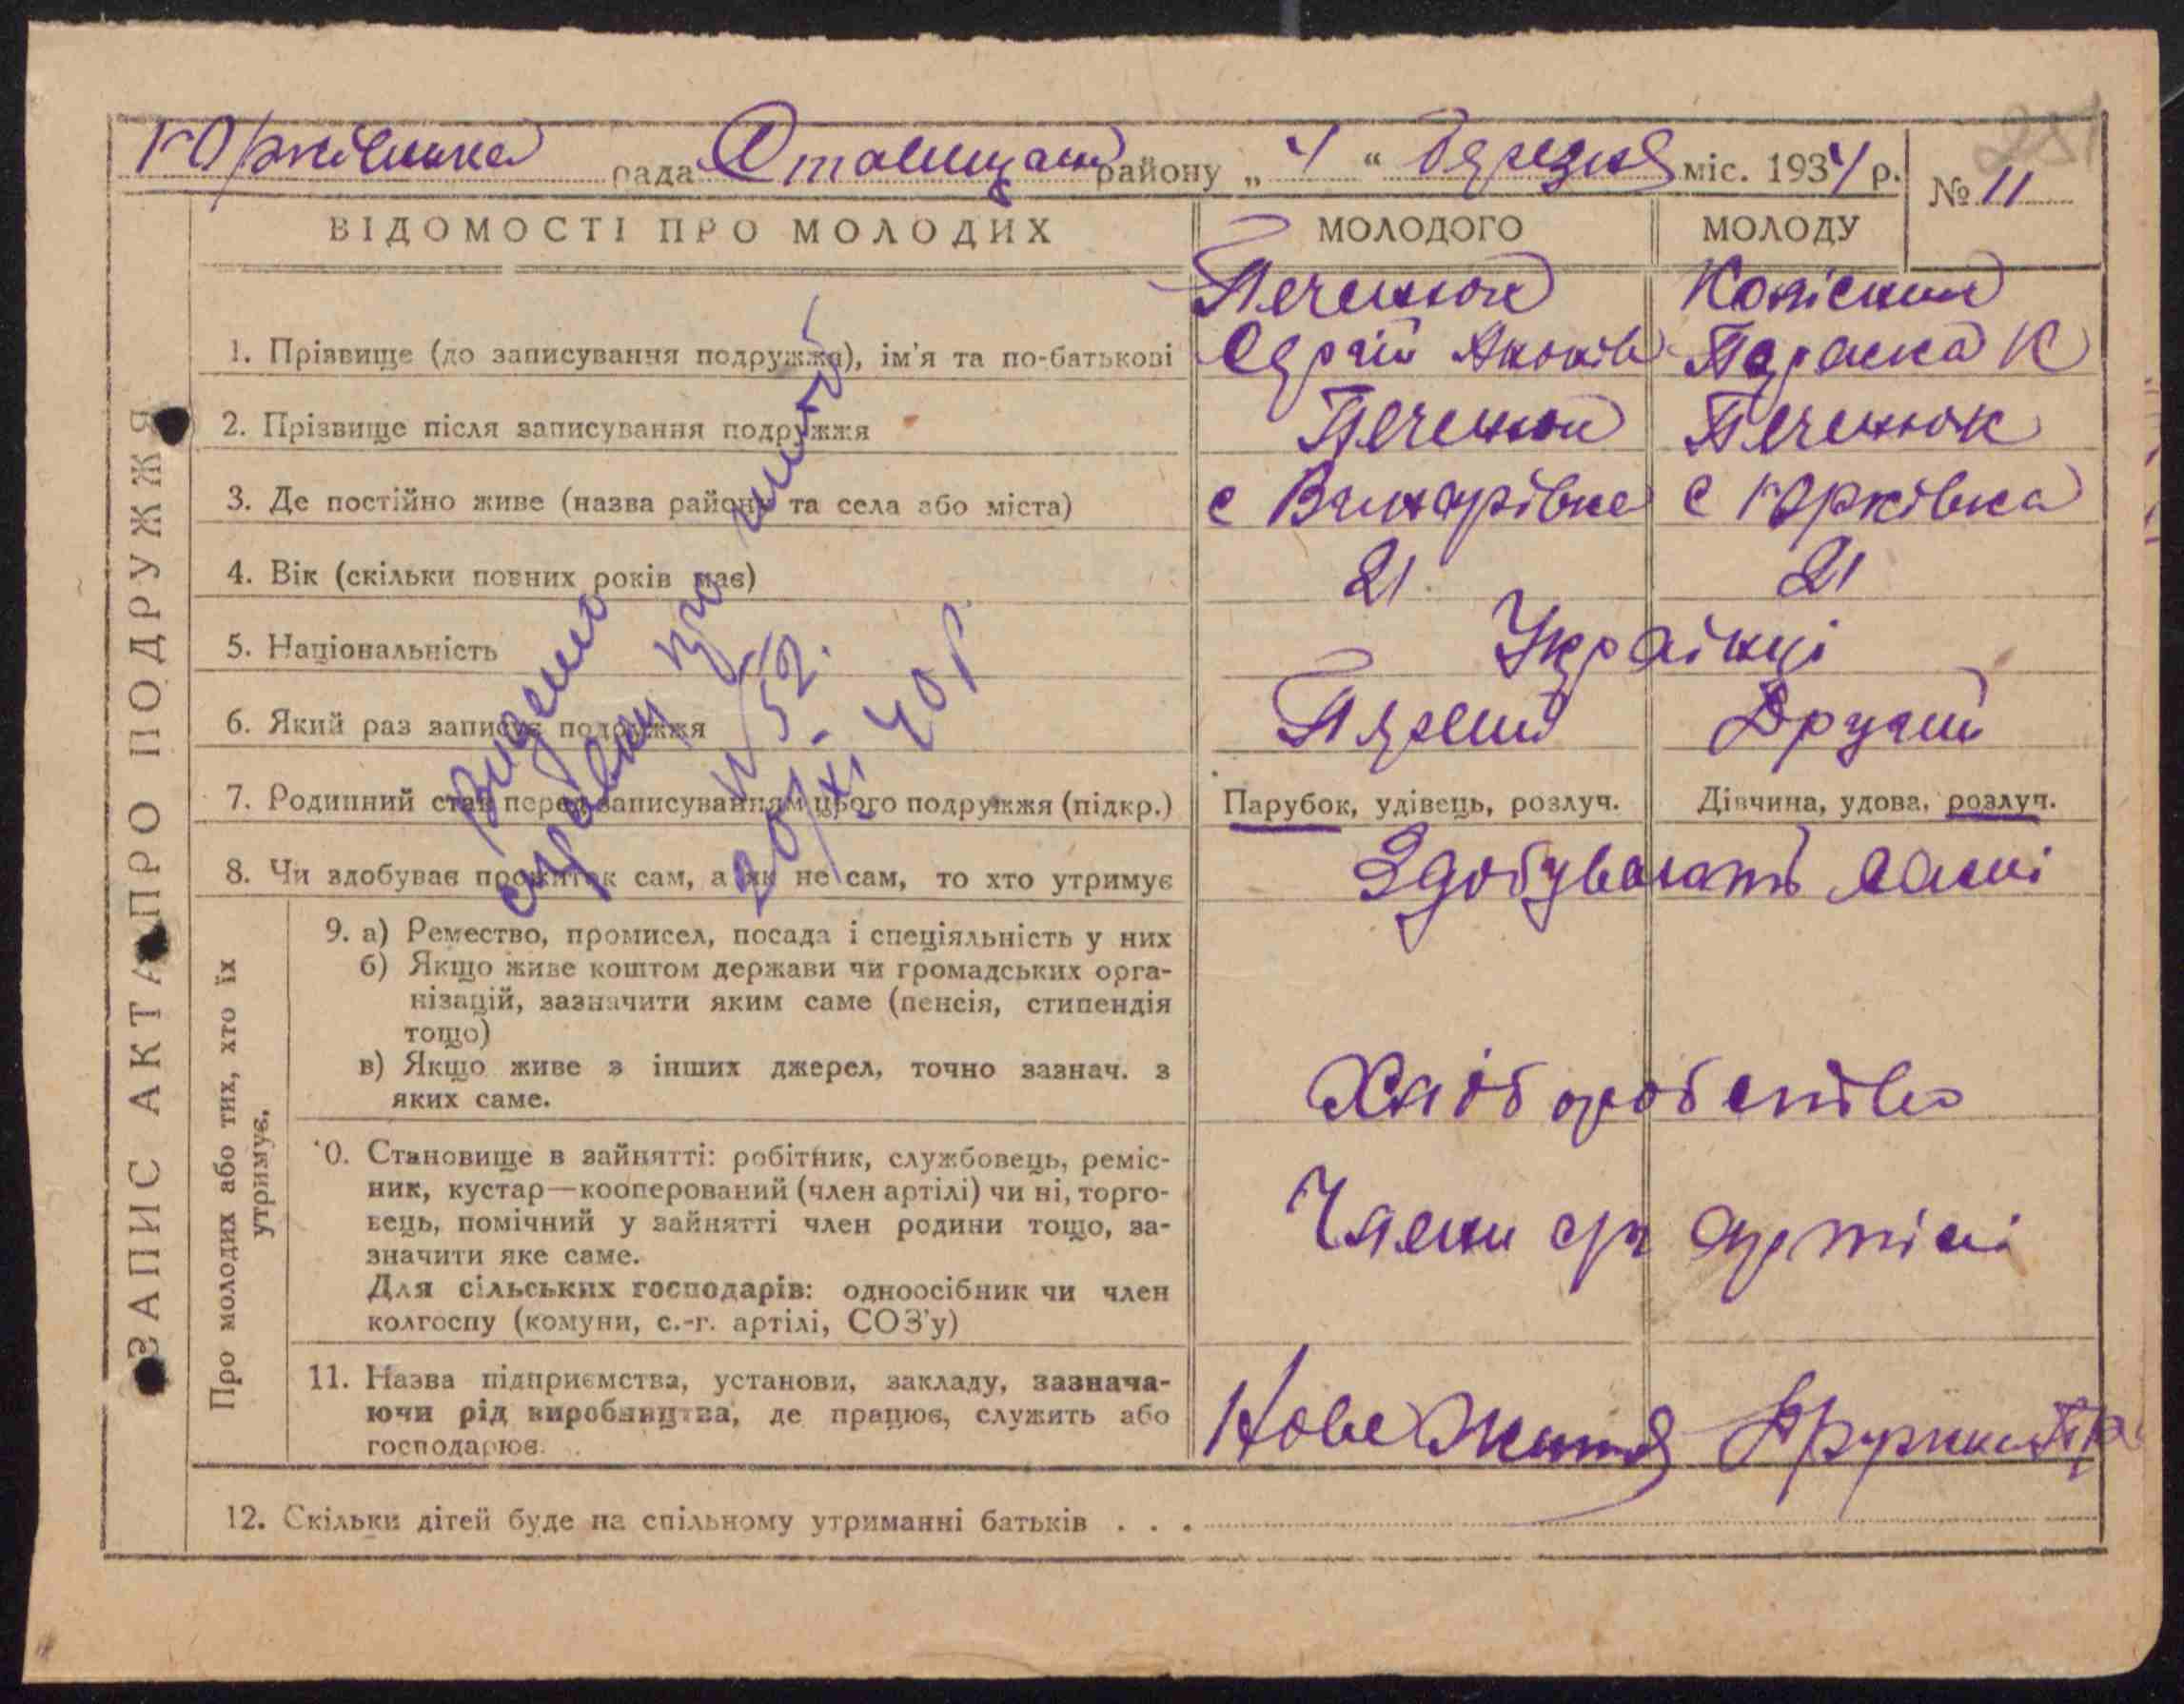 Юрківська рада Ставищан району „ 4 “ березня міс. 1934 р. № 11
251
ЗАПИС АКТА ПРО ПОДРУЖЖЯ
ВІДОМОСТІ ПРО МОЛОДИХ МОЛОДОГО МОЛОДУ
Печенюк
1. Прізвище (до записування подружжя), ім'я та по-батькові Яковів Параска К
2. Прізвище після записування подружжя Печенюк Печенюк
3. Де постійно живе (назва району та села або міста) с с Юрківка
4. Вік (скільки повних років має) 21 21
5. Національність Українці
6. Який раз записує подружжя Перший Другий
7. Родинний стан перед записуванням цього подружжя (підкр.) Парубок, удівець, розлуч. Дівчина, удова, розлуч.
8. Чи здобуває прожиток сам, а як не сам, то хто утримує Здобувають самі
Видано
справку про шлюб
N 52.
20/XI 40 р
Про молодих або тих, хто їх
утримує.
9. а) Ремество, промисел, посада і спеціяльність у них
б) Якщо живе коштом держави чи громадських орга-
нізацій, зазначити яким саме (пенсія, стипендія
тощо)
в) Якщо живе з інших джерел, точно зазнач. з
яких саме.
Хліборобство
10. Становище в зайнятті: робітник, службовець, реміс-
ник, кустар—кооперований (член артілі) чи ні, торго-
вець, помічний у зайнятті член родини тощо, за-
значити яке саме.
Для сільських господарів: одноосібник чи член
колгоспу (комуни, с.-г. артілі, СОЗ'у)
Члени с/г артілі
11. Назва підприємства, установи, закладу, зазнача-
ючи рід виробництва, де працює, служить або
господарює.
Нове Життя
12. Скільки дітей буде на спільному утриманні батьків . . .